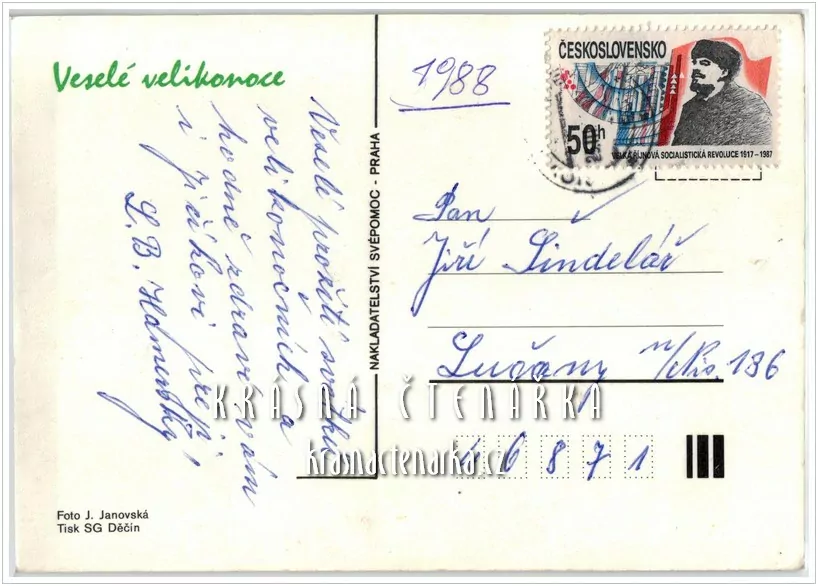 Veselé velikonoce
Veselé prožití svátků
velikonočních a
hodně zdraví vám
i Jiříkovi přejí
L. B.
NAKLADATELSTVÍ SVÉPOMOC - PRAHA
1988
ČESKOSLOVENSKO
50h
VELKÁ ŘÍJNOVÁ SOCIALISTICKÁ REVOLUCE 1917–1987
Pan
Jiří Šindelář
Lučany n/Nis. 136
46871
KRÁSNÁ ČTENÁŘKA
krasnactenarka.cz
Foto J. Janovská
Tisk SG Děčín